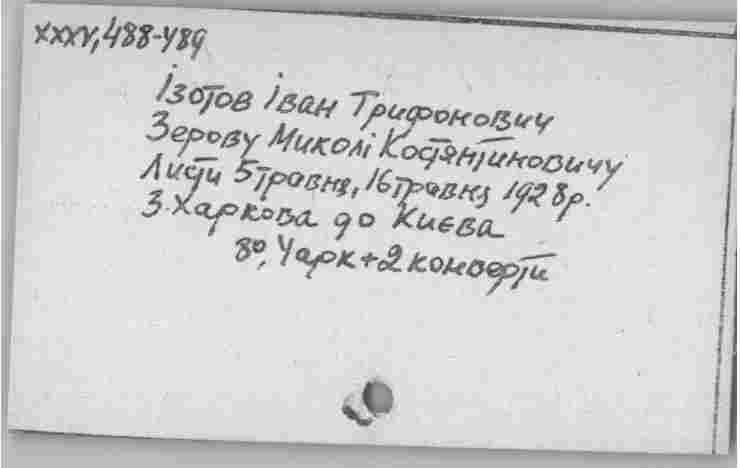 XXXV, 488-489
Ізотов Іван Трифонович
Зерову Миколі Костянтиновичу
Листи 5 травня, 16 травня 1928 р.
З Харкова до Києва
8°, 4 арк + 2 конверти